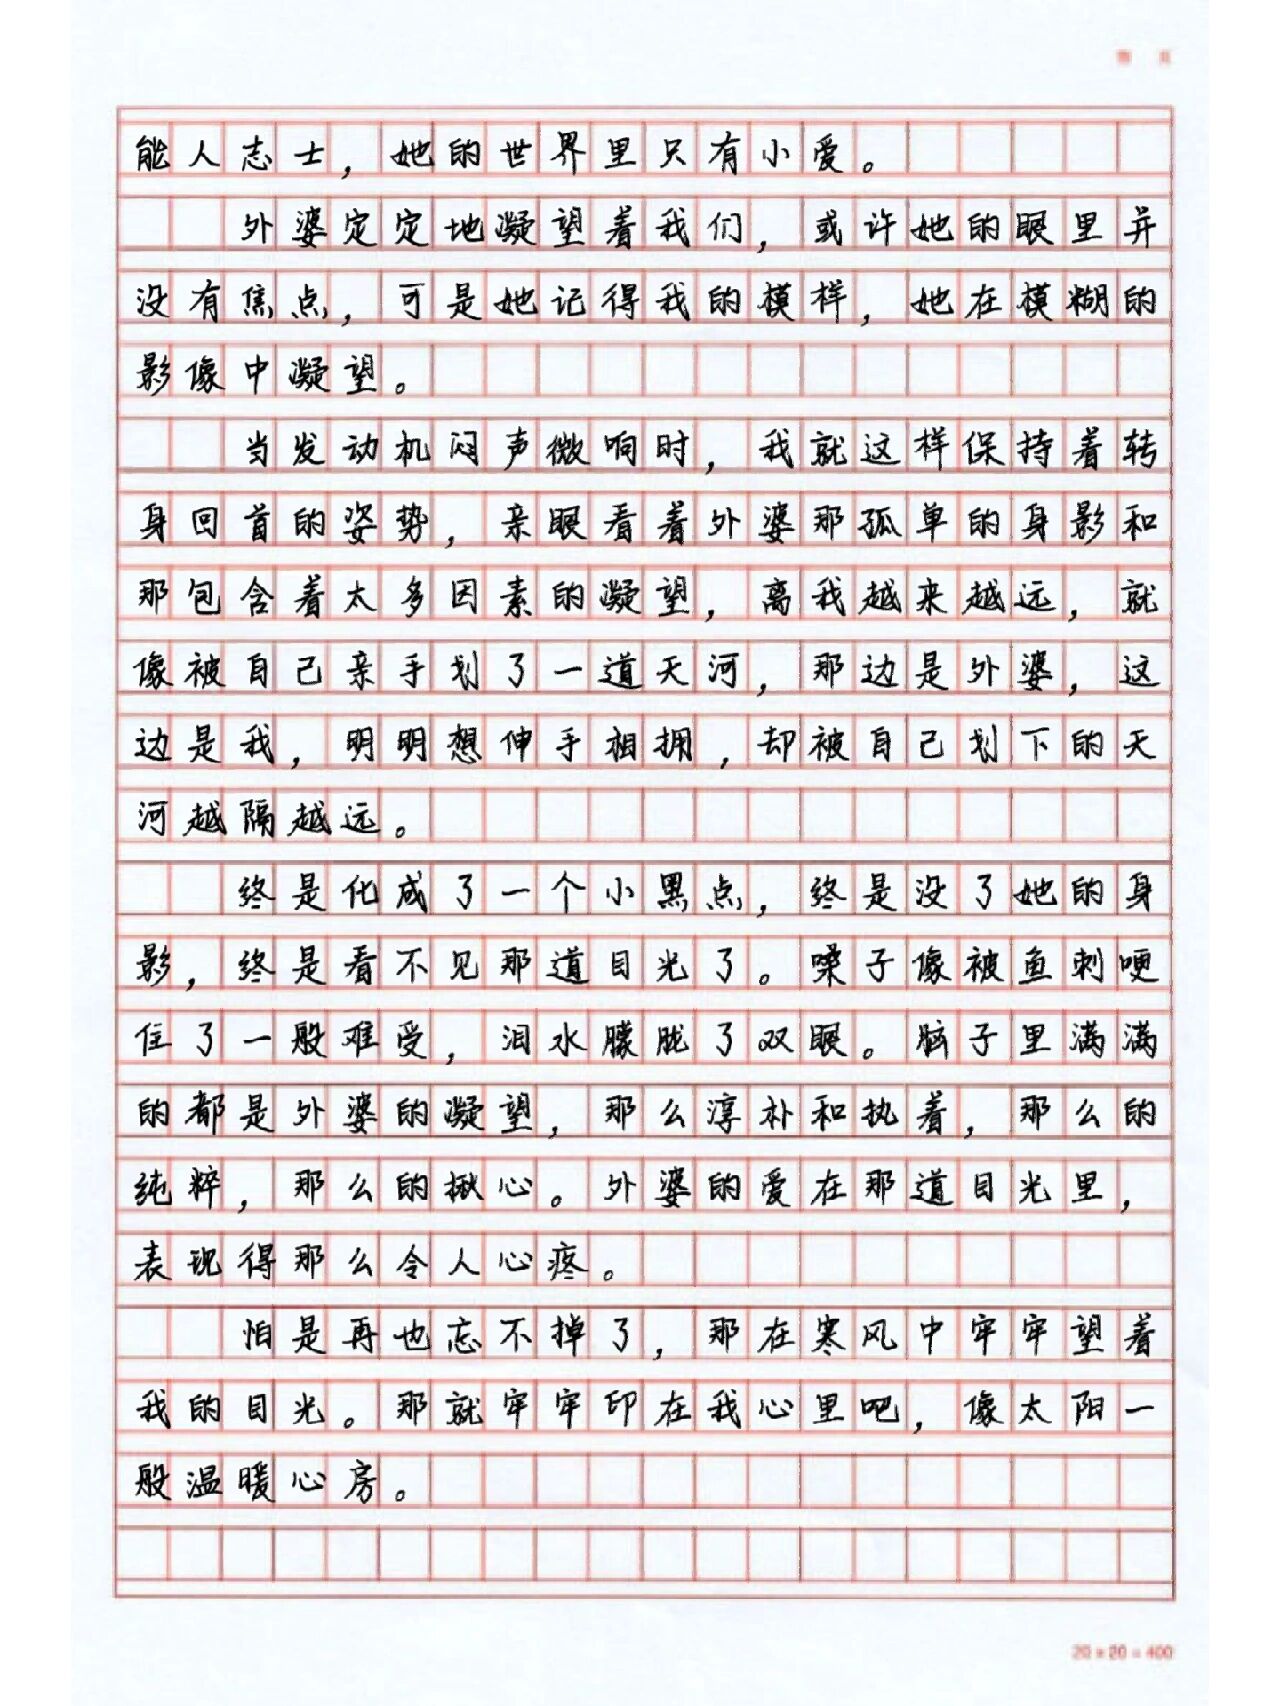 能人志士，她的世界里只有小爱。
外婆定定地凝望着我们，或许她的眼里并
没有焦点，可是她记得我的模样，她在模糊的
影像中凝望。
当发动机闷声微响时，我就这样保持着转
身回首的姿势，亲眼看着外婆那孤单的身影和
那包含着太多因素的凝望，离我越来越远，就
像被自己亲手划了一道天河，那边是外婆，这
边是我，明明想伸手相拥，却被自己划下的天
河越隔越远。
终是化成了一个小黑点，终是没了她的身
影，终是看不见那道目光了。嗓子像被鱼刺哽
住了一般难受，泪水朦胧了双眼。脑子里满满
的都是外婆的凝望，那么淳朴和执着，那么的
纯粹，那么的揪心。外婆的爱在那道目光里，
表现得那么令人心疼。
怕是再也忘不掉了，那在寒风中牢牢望着
我的目光。那就牢牢印在我心里吧，像太阳一
般温暖心房。
20×20=400